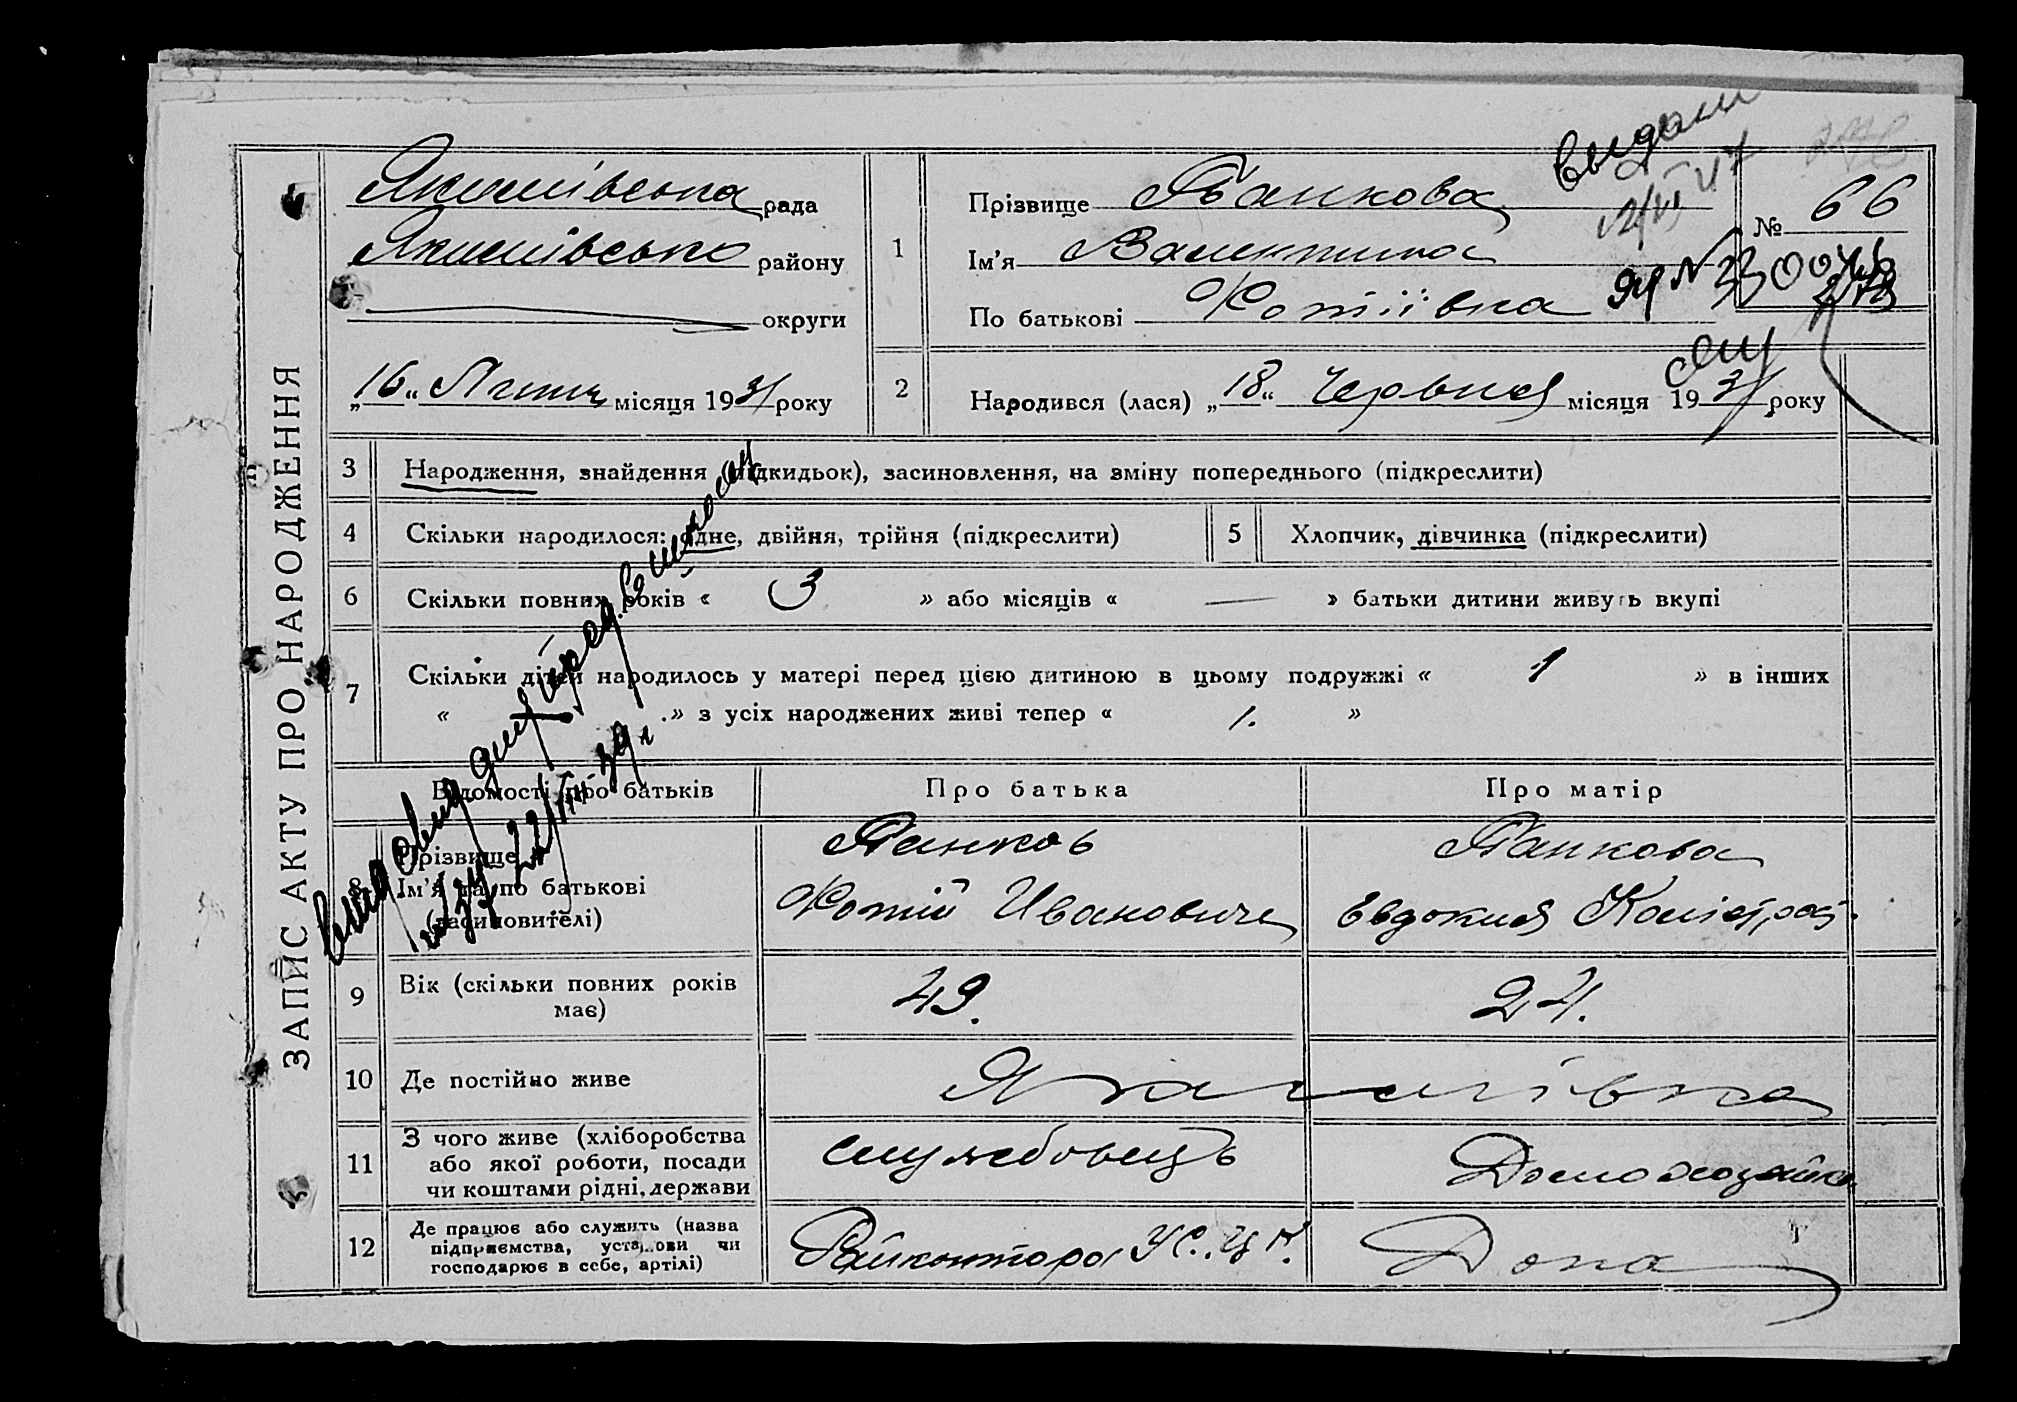 ЗАПИС АКТУ ПРО НАРОДЖЕННЯ
Якимівська рада
Якимівсько району
округи
„16“ Липня місяця 1931 року
1
Прізвище Панкова
Ім'я Валентина
По батькові Фотіївна
Выдан
№ 66
2
Народився (лася) „18“ Червня місяця 1931 року
3 Народження, знайдення (підкидьок), засиновлення, на зміну попереднього (підкреслити)
4 Скільки народилося: одне, двійня, трійня (підкреслити)
5 Хлопчик, дівчинка (підкреслити)
6 Скільки повних років « 3 » або місяців « — » батьки дитини живуть вкупі
7 Скільки дітей народилось у матері перед цією дитиною в цьому подружжі « 1 » в інших
« — » з усіх народжених живі тепер « 1. »
Відомості про батьків
Про батька
Про матір
8 Прізвище
Ім'я та по батькові
(засиновителі)
Панков
Фотий Иванович
Панкова
Евдокия
9 Вік (скільки повних років
має)
49.
24.
10 Де постійно живе
Якимівка
11 З чого живе (хліборобства
або якої роботи, посади
чи коштами рідні, держави
службовець
Домохозяйка
12 Де працює або служить (назва
підприємства, установи чи
господарює в себе, артілі)
Райконтора
Дома